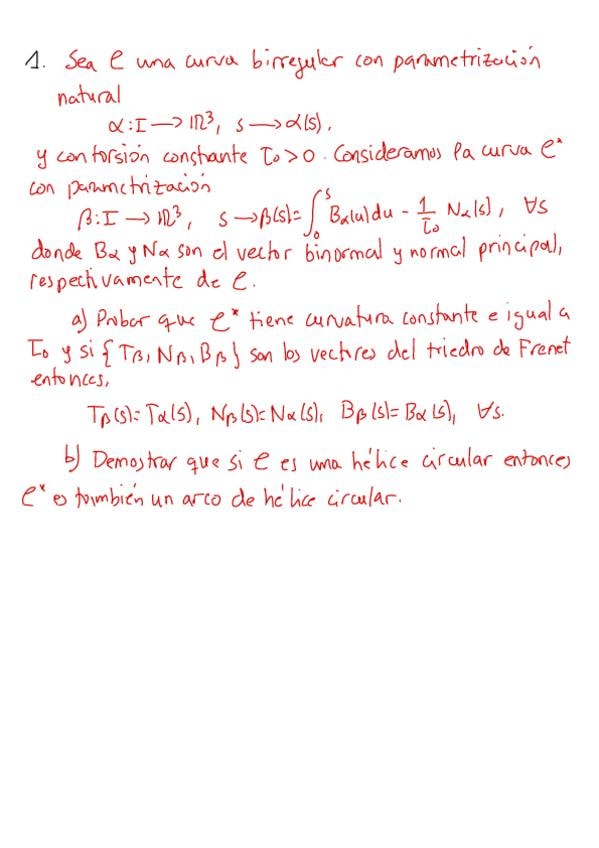 1. Sea C una curva birregular con parametrización
natural
α: I → R³, s → α(s).
y con torsión constante τ₀ > 0. Consideramos la curva C*
con parametrización
β: I → R³, s → β(s) = ∫₀ˢ Bα(u)du - 1/τ₀ Nα(s), ∀s
donde Bα y Nα son el vector binormal y normal principal,
respectivamente de C.
a) Probar que C* tiene curvatura constante e igual a
τ₀ y si {Tβ, Nβ, Bβ} son los vectores del triedro de Frenet
entonces,
Tβ(s) = Tα(s), Nβ(s) = Nα(s), Bβ(s) = Bα(s), ∀s.
b) Demostrar que si C es una hélice circular entonces
C* es también un arco de hélice circular.